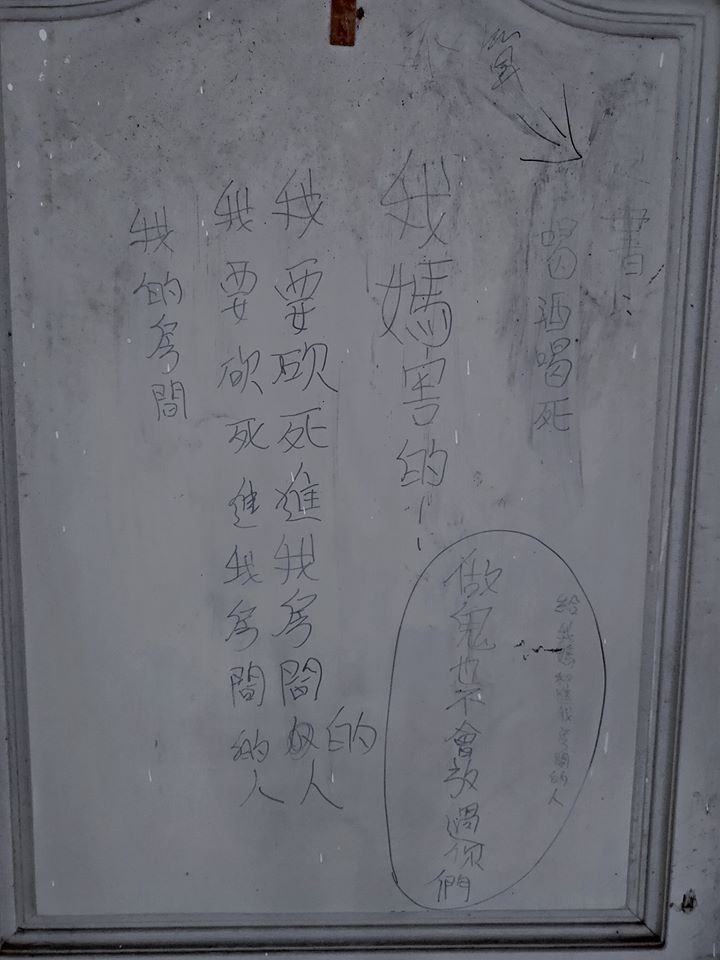 書:
喝酒喝死
不管
我媽害的
給我媽和進我房間的人
做鬼也不會放過你們
我要砍死進我房間的人
我要砍死進我房間的人
我的房間